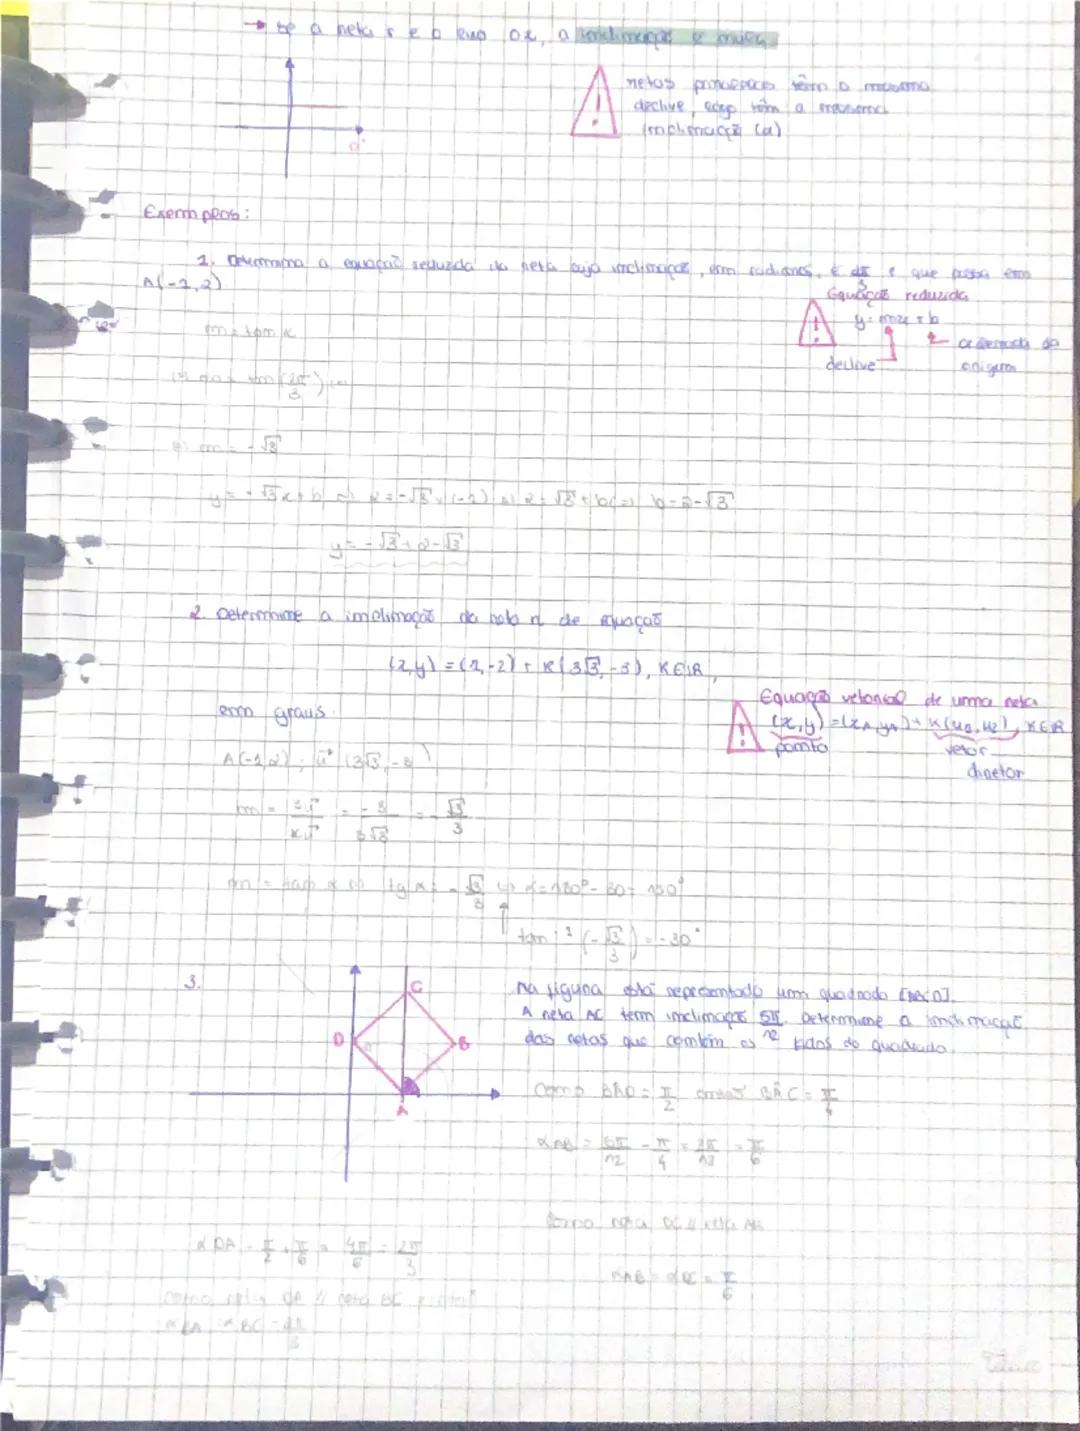 → se a reta r é o eixo Ox, a inclinação é nula
retas paralelas têm o mesmo
declive, logo têm a mesma
inclinação (α)
Exemplos:
1. Determina a equação reduzida da reta cuja inclinação, em radianos, é 2π/3 e que passa em
A(-1,2)
Equação reduzida
y = mx + b
ordenada da
declive
origem
m = tan α
(=) m = tan(2π/3) (=)
(=) m = -√3
y = -√3x + b (=) 2 = -√3 × (-1) (=) 2 = √3 + b (=) b = 2-√3
y = -√3 + 2-√3
2. Determine a inclinação da reta r de equação
(x,y) = (1,-2) + K(3√3,-3), K∈ℝ,
em graus.
Equação vetorial de uma reta
(x,y) = (xA,yA) + K(u1,u2), K∈ℝ
ponto
vetor
diretor
A(-1,2) ; u⃗ (3√3,-3)
m = yu⃗/xu⃗ = -3/3√3 = -√3/3
m = tan α (=) tg α = -√3/3 (=) α = 180° - 30 = 150°
tan⁻¹(-√3/3) = -30°
3.
C
D
B
A
Na figura está representado um quadrado [ABCD].
A reta AC tem inclinação 5π/12. Determine a inclinação
das retas que contêm os lados do quadrado.
Como BÂD = π/2 então BÂC = π/4
αAB = 5π/12 - π/4 = 2π/12 = π/6
Como reta DC // reta AB
αDA = π/2 + π/6 = 4π/6 = 2π/3
αAB = αDC = π/6
como reta DA // reta BC
αDA = αBC = 2π/3